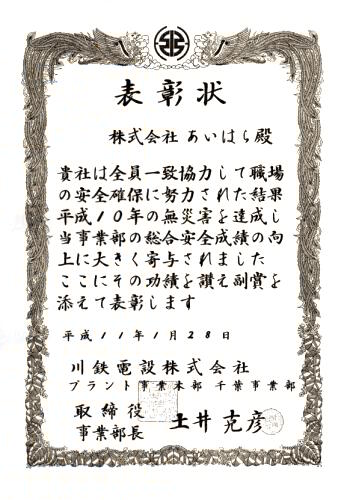 表彰状
株式会社あいはら殿
貴社は全員一致協力して職場
の安全確保に努力された結果
平成10年の無災害を達成し
当事業部の総合安全成績の向
上に大きく寄与されました
ここにその功績を讃え副賞を
添えて表彰します
平成11年1月28日
川鉄電設株式会社
プラント事業本部 千葉事業部
取締役
事業部長 土井克彦